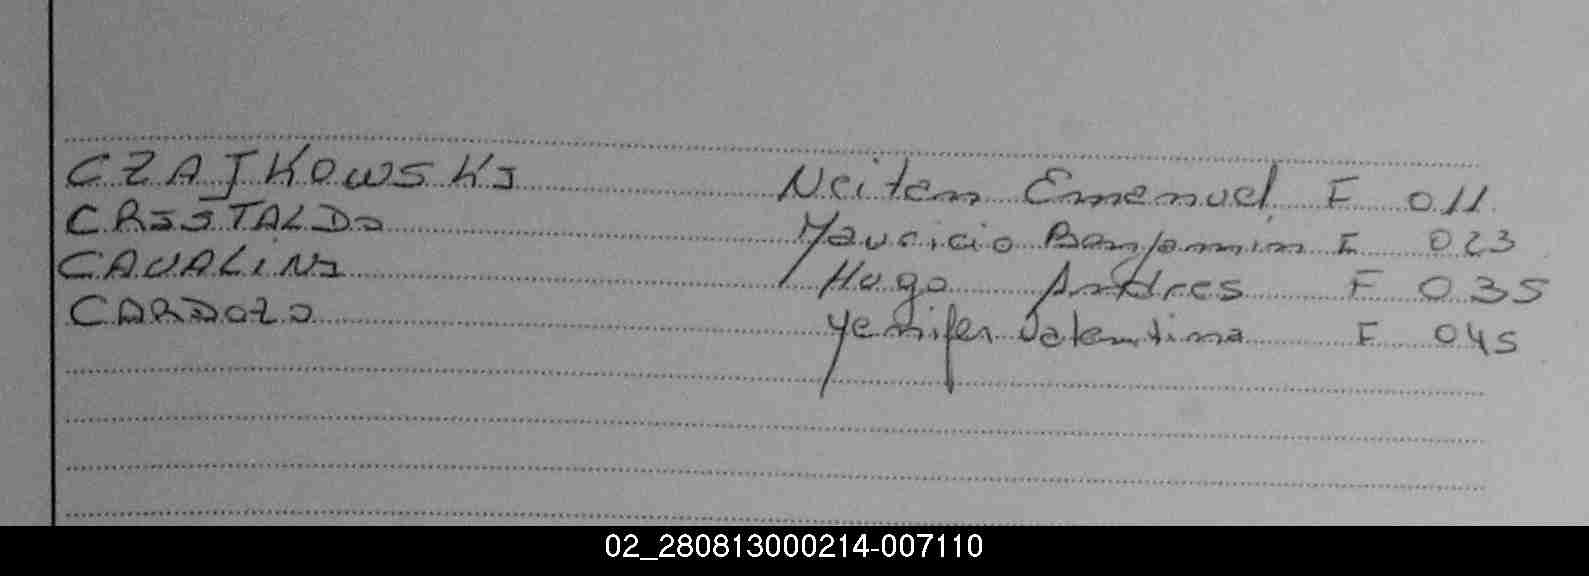 CZAJKOWSKI Neitan Emanuel F 011
CRISTALDO Mauricio Benjamin F 023
CAVALINI Hugo Andres F 035
CARDOZO Yenifer Valentina F 045
02_280813000214-007110